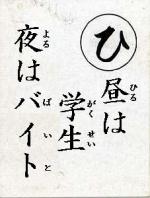 ひ
昼は
学生
夜はバイト
ひる
がくせい
よる
ばいと